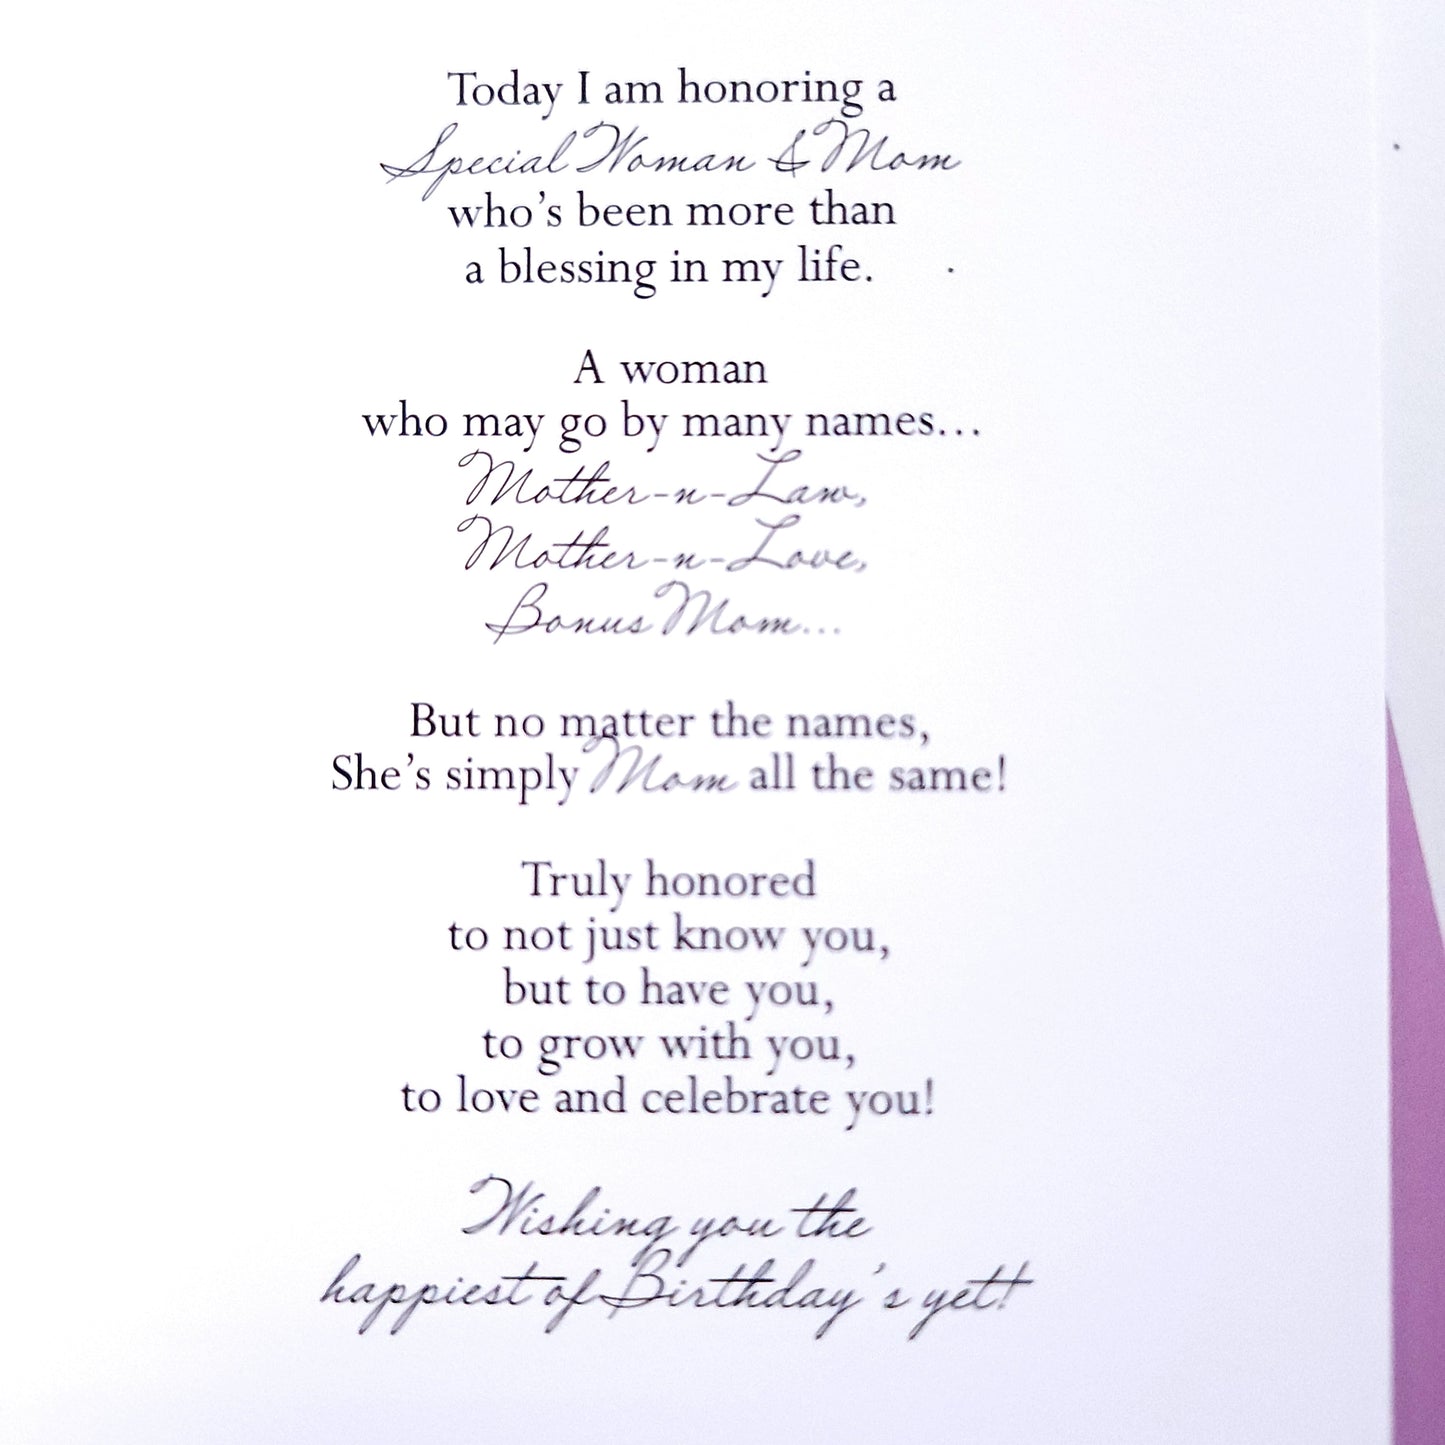 Today I am honoring a
Special Woman & Mom
who's been more than
a blessing in my life.
A woman
who may go by many names...
Mother-n-Law,
Mother-n-Love,
Bonus Mom...
But no matter the names,
She's simply Mom all the same!
Truly honored
to not just know you,
but to have you,
to grow with you,
to love and celebrate you!
Wishing you the
happiest of Birthday's yet!